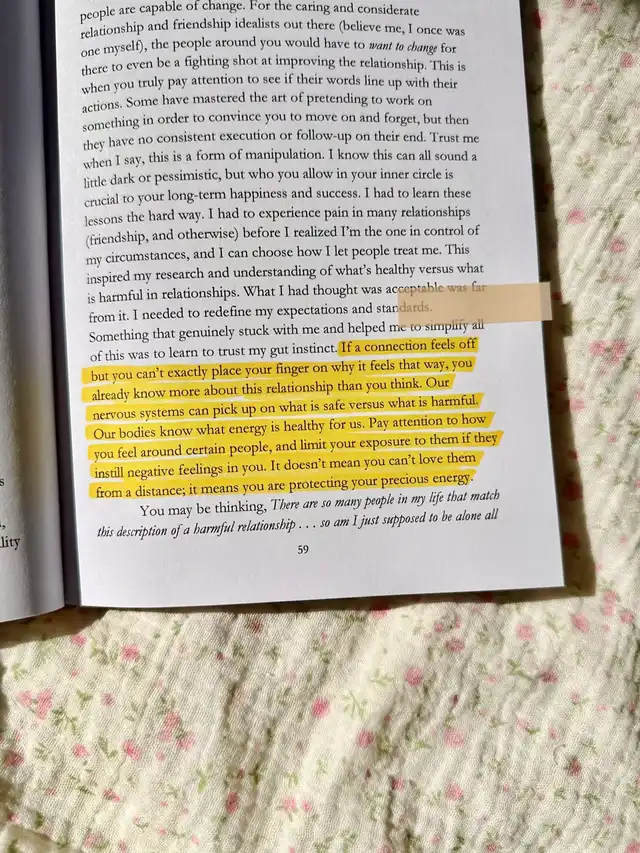 people are capable of change. For the caring and considerate
relationship and friendship idealists out there (believe me, I once was
one myself), the people around you would have to want to change for
there to even be a fighting shot at improving the relationship. This is
when you truly pay attention to see if their words line up with their
actions. Some have mastered the art of pretending to work on
something in order to convince you to move on and forget, but then
they have no consistent execution or follow-up on their end. Trust me
when I say, this is a form of manipulation. I know this can all sound a
little dark or pessimistic, but who you allow in your inner circle is
crucial to your long-term happiness and success. I had to learn these
lessons the hard way. I had to experience pain in many relationships
(friendship, and otherwise) before I realized I'm the one in control of
my circumstances, and I can choose how I let people treat me. This
inspired my research and understanding of what's healthy versus what
is harmful in relationships. What I had thought was acceptable was far
from it. I needed to redefine my expectations and standards.
Something that genuinely stuck with me and helped me to simplify all
of this was to learn to trust my gut instinct. If a connection feels off
but you can't exactly place your finger on why it feels that way, you
already know more about this relationship than you think. Our
nervous systems can pick up on what is safe versus what is harmful.
Our bodies know what energy is healthy for us. Pay attention to how
you feel around certain people, and limit your exposure to them if they
instill negative feelings in you. It doesn't mean you can't love them
from a distance; it means you are protecting your precious energy.
You may be thinking, There are so many people in my life that match
this description of a harmful relationship . . . so am I just supposed to be alone all
59
s
,
lity